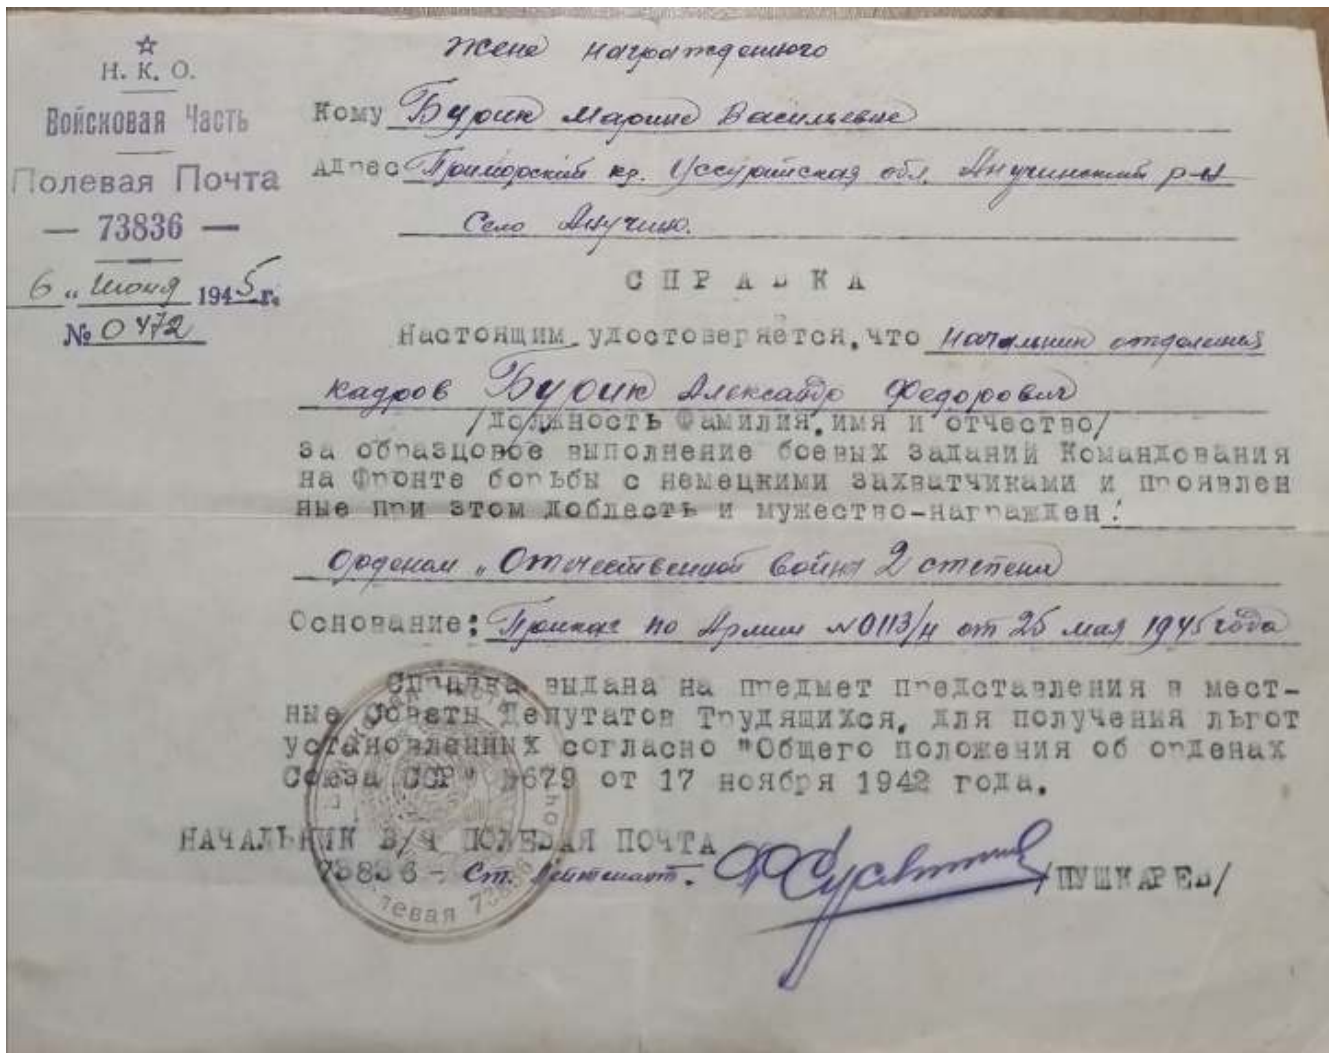 Н. К. О.
Войсковая Часть
Полевая Почта
— 73836 —
6 „ Июня 1945 г.
№ 0472
Жене награжденного
Кому Бурик Марине Васильевне
Адрес Приморский кр. Уссурийская обл. Анучинский р-н
Село Анучино.
СПРАВКА
Настоящим удостоверяется, что Начальник отделения
кадров Бурик Александр Федорович
/Должность Фамилия, имя и отчество/
за образцовое выполнение боевых заданий Командования
на Фронте борьбы с немецкими захватчиками и проявлен
ные при этом доблесть и мужество-награжден:
Орденом „Отечественной войны 2 степени
Основание: Приказ по Армии №0113/н от 25 мая 1945 года
Справка выдана на предмет представления в мест-
ные Советы Депутатов Трудящихся, для получения льгот
установленных согласно "Общего положения об орденах
Союза ССР" №679 от 17 ноября 1942 года.
НАЧАЛЬНИК В/Ч ПОЛЕВАЯ ПОЧТА
73836 - Ст. Лейтенант.
/ПУШКАРЕВ/